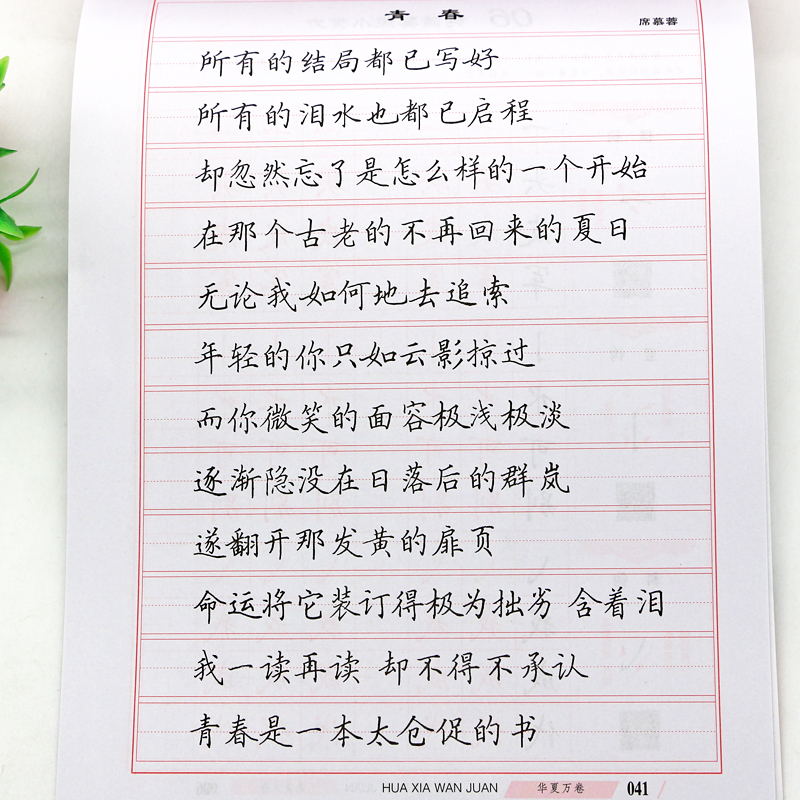 青春
席慕蓉
所有的结局都已写好
所有的泪水也都已启程
却忽然忘了是怎么样的一个开始
在那个古老的不再回来的夏日
无论我如何地去追索
年轻的你只如云影掠过
而你微笑的面容极浅极淡
逐渐隐没在日落后的群岚
遂翻开那发黄的扉页
命运将它装订得极为拙劣 含着泪
我一读再读 却不得不承认
青春是一本太仓促的书
HUA XIA WAN JUAN 华夏万卷 041